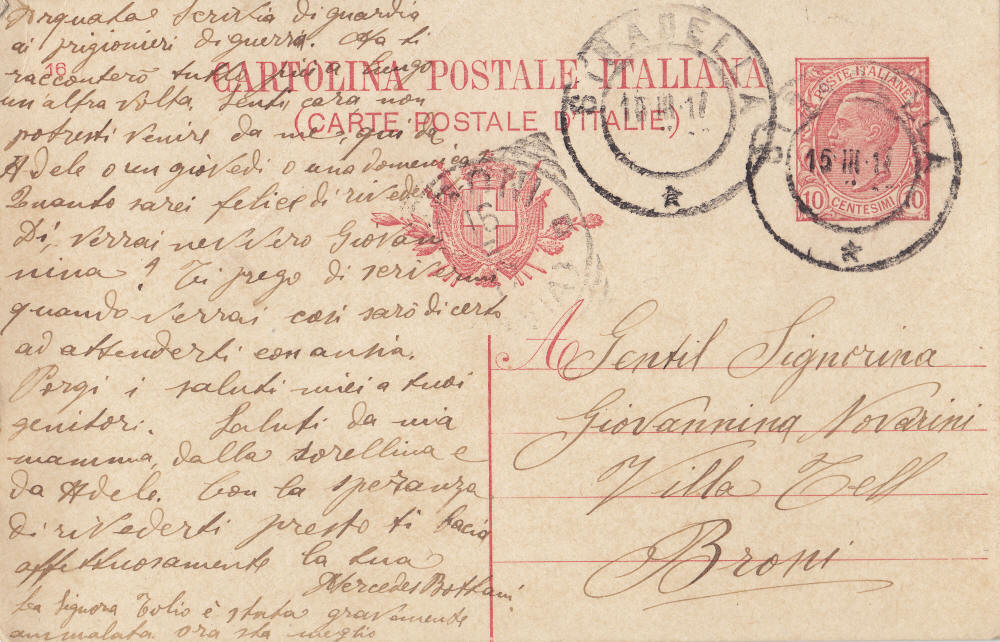 Arquata Scrivia di guardia
ai prigionieri di guerra. Ma ti
racconterò tutto più a lungo
un'altra volta. Senti cara non
potresti venire da me, qui da
Adele o un giovedì o una domenica
Quanto sarei felice di rivederti
Di', verrai nevvero Giovan
nina? Ti prego di scrivermi
quando verrai così sarò di certo
ad attenderti con ansia.
Porgi i saluti miei a tuoi
genitori. Saluti da mia
mamma, dalla sorellina e
da Adele. Con la speranza
di rivederti presto ti bacio
affettuosamente la tua
Mercedes Bottani
La Signora Tolio è stata gravemente
ammalata ora sta meglio
16
CARTOLINA POSTALE ITALIANA
(CARTE POSTALE D'ITALIE)
STRADELLA
15 III 17
STRADELLA
15 III 17
POSTE ITALIANE
10 CENTESIMI 10
16
A Gentil Signorina
Giovannina Novarini
Villa Tell
Broni